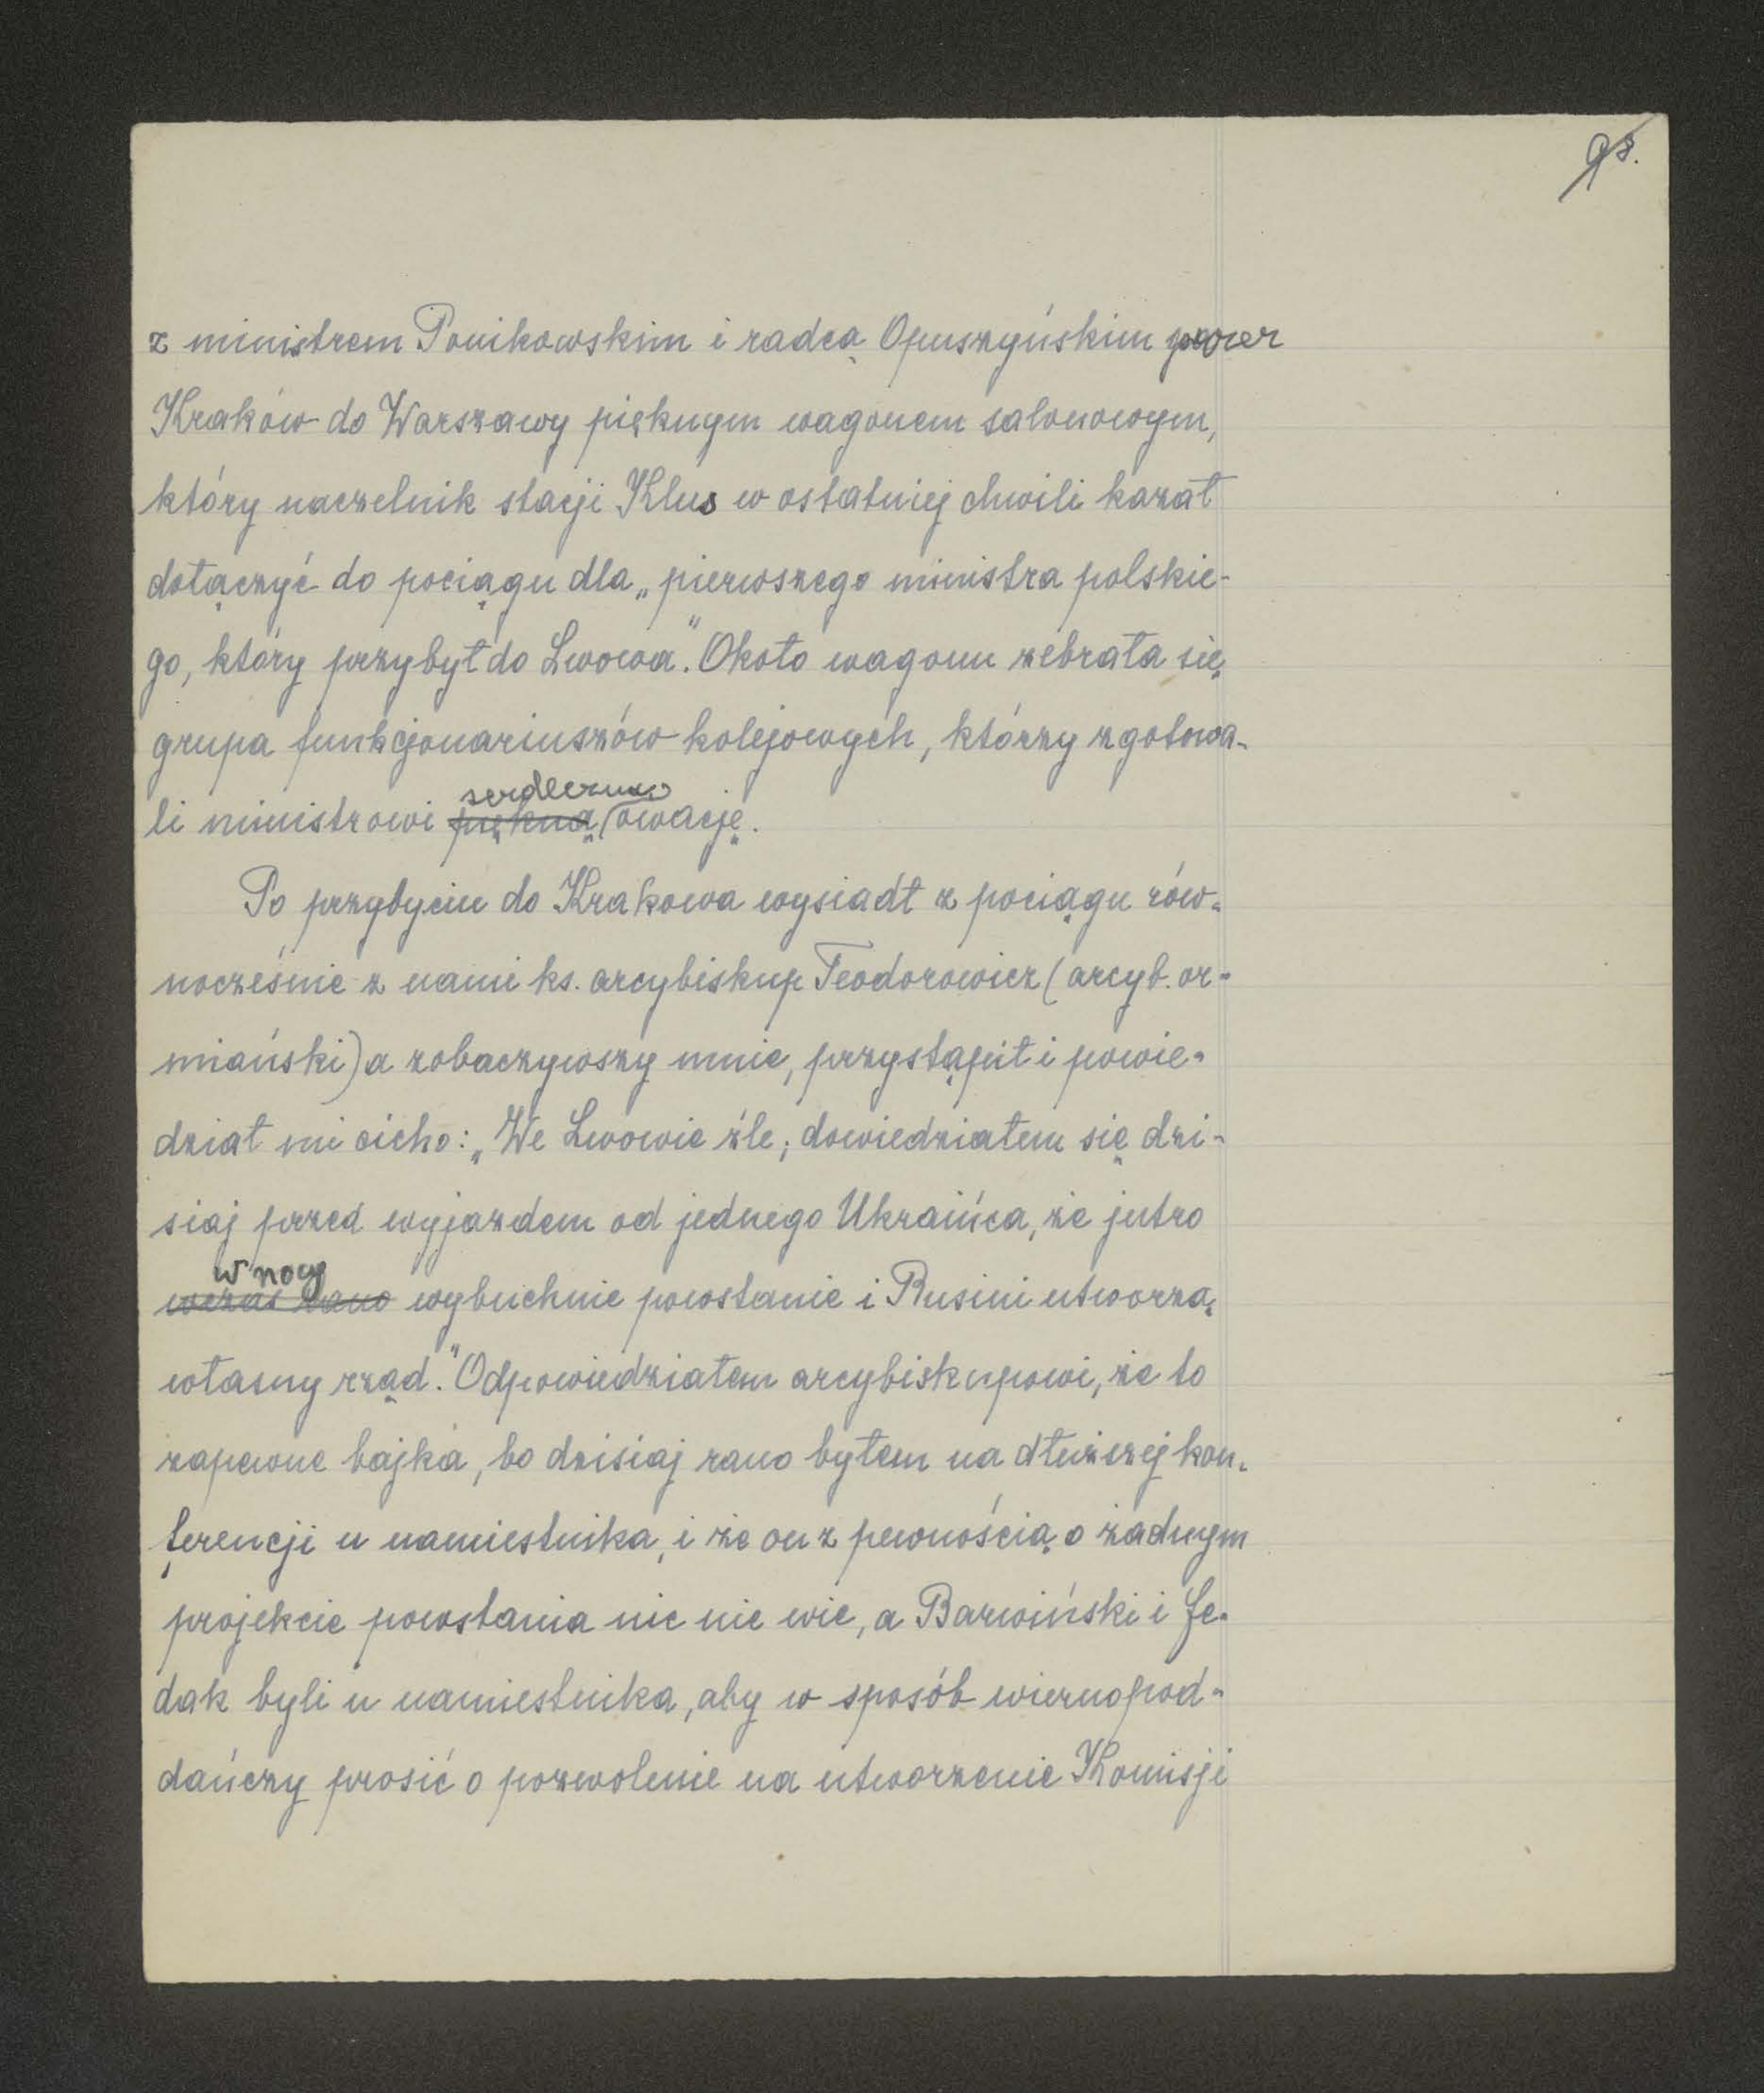 z ministrem Ponikowskim i radcą Opuszyńskim przez
Kraków do Warszawy pięknym wagonem salonowym,
który naczelnik stacji Klus w ostatniej chwili kazał
dołączyć do pociągu dla „pierwszego ministra polskie-
go, który przybył do Lwowa". Około wagonu zebrała się
grupa funkcjonariuszów kolejowych, którzy zgotowa-
serdeczną
li ministrowi piękną owację.
Po przybyciu do Krakowa wysiadł z pociągu rów-
nocześnie z nami ks. arcybiskup Teodorowicz (arcyb. or-
miański) a zobaczywszy mnie, przystąpił i powie-
dział mi cicho: „We Lwowie źle; dowiedziałem się dzi-
siaj przed wyjazdem od jednego Ukraińca, że jutro
w nocy
wczas rano wybuchnie powstanie i Rusini utworzą
własny rząd." Odpowiedziałem arcybiskupowi, że to
zapewne bajka, bo dzisiaj rano byłem na dłuższej kon-
ferencji u namiestnika, i że on z pewnością o żadnym
projekcie powstania nic nie wie, a Barwiński i Fe-
dak byli u namiestnika, aby w sposób wiernopod-
dańczy prosić o pozwolenie na utworzenie Komisji